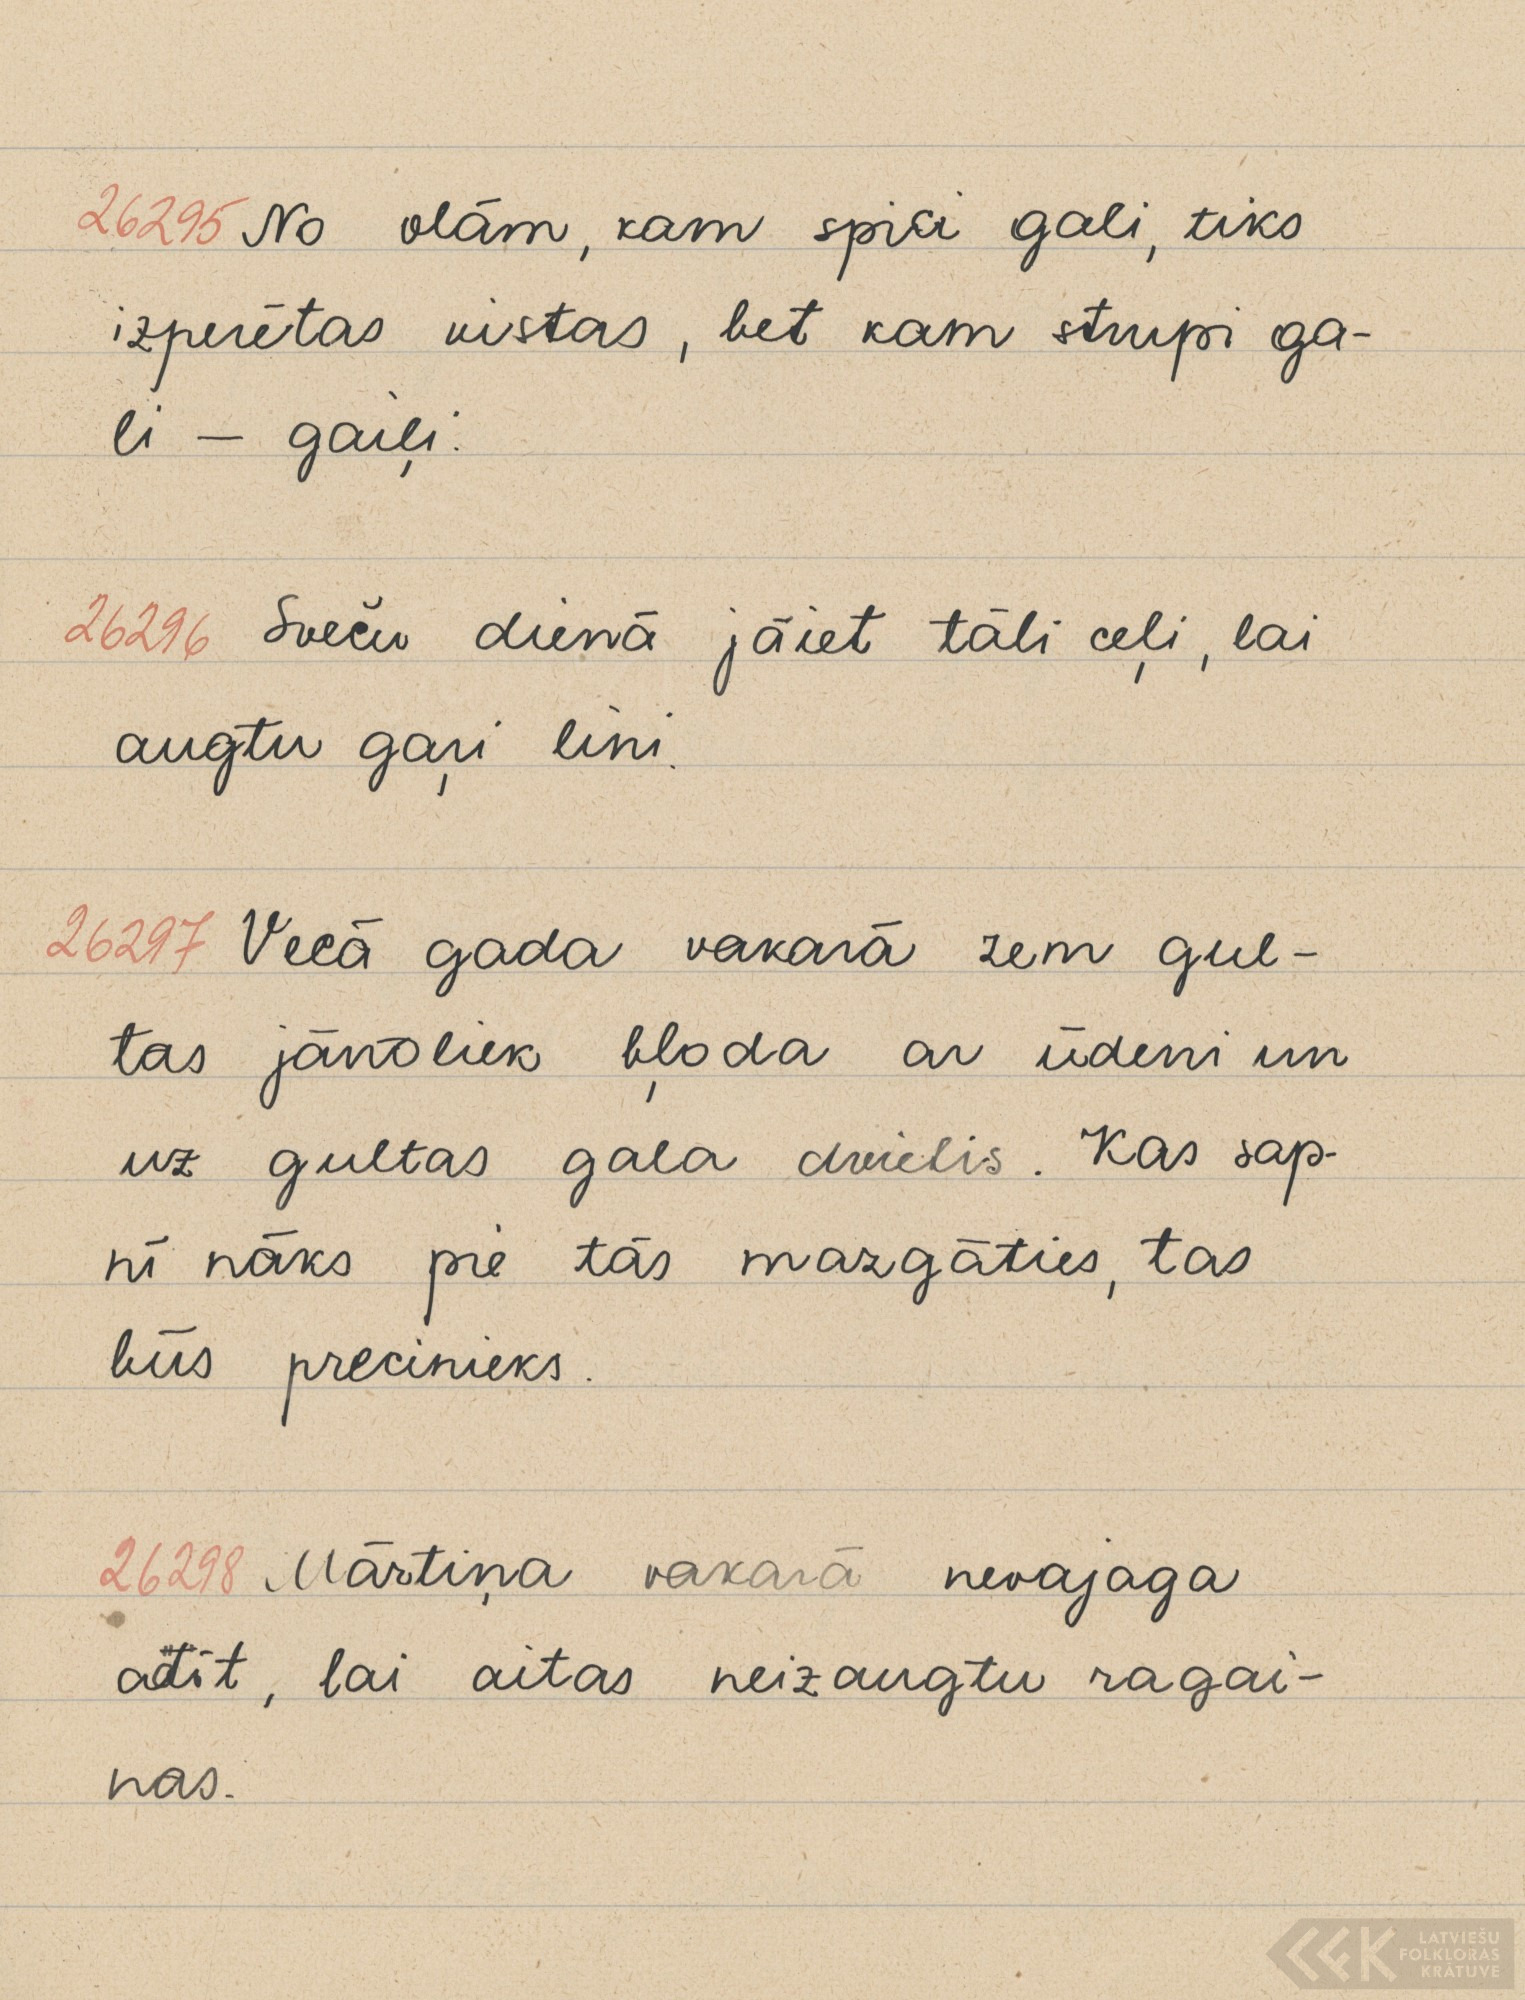 26295 No olām, kam spici gali, tiks
izperētas vistas, bet kam strupi ga-
li — gaiļi.
26296 Sveču dienā jāiet tāli ceļi, lai
augtu gaŗi lini.
26297 Vecā gada vakarā zem gul-
tas jānoliek bļoda ar ūdeni un
uz gultas gala dvielis. Kas sap-
nī nāks pie tās mazgāties, tas
būs precinieks.
26298 Mārtiņa vakarā nevajaga
adīt, lai aitas neizaugtu ragai-
nas.
LATVIEŠU
FOLKLORAS
KRĀTUVE